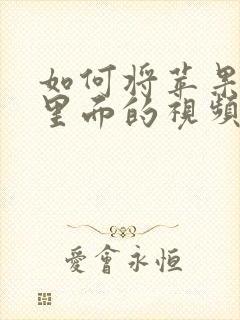 如何将苹果
里面的視頻
愛會永恒